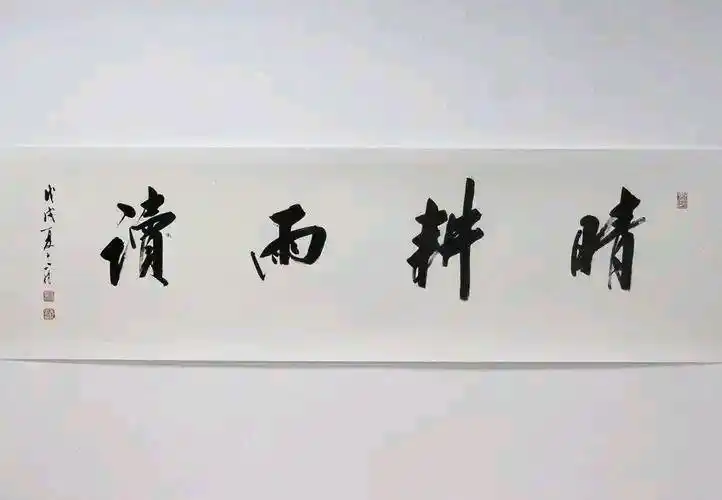 晴耕雨讀
戊戌夏